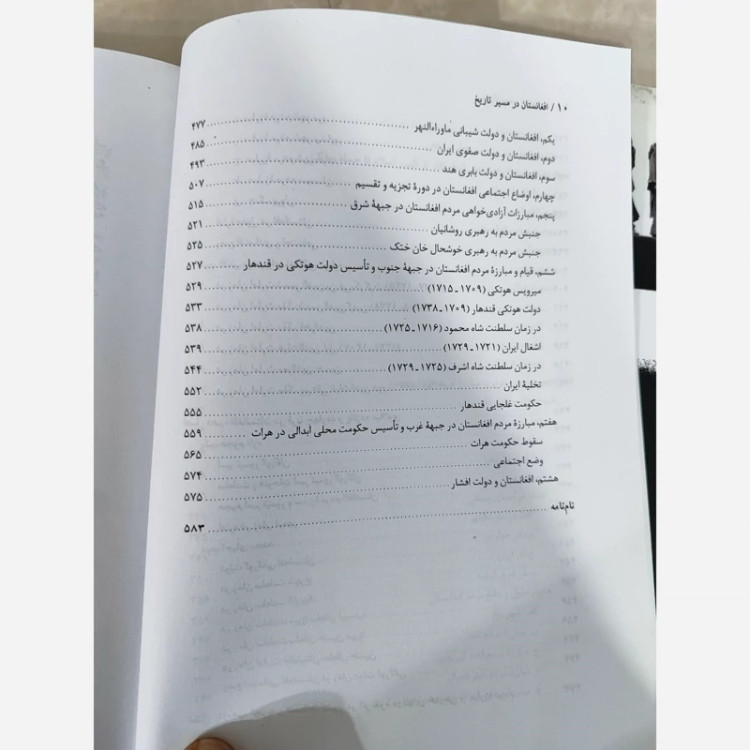 ۱۰ / افغانستان در مسیر تاریخ
یکم، افغانستان و دولت شیبانی ماوراءالنهر ۴۷۷
دوم، افغانستان و دولت صفوی ایران ۴۸۵
سوم، افغانستان و دولت بابری هند ۴۹۳
چهارم، اوضاع اجتماعی افغانستان در دورهٔ تجزیه و تقسیم ۵۰۷
پنجم، مبارزات آزادی‌خواهی مردم افغانستان در جبههٔ شرق ۵۱۵
جنبش مردم به رهبری روشانیان ۵۲۱
جنبش مردم به رهبری خوشحال خان ختک ۵۲۵
ششم، قیام و مبارزهٔ مردم افغانستان در جبههٔ جنوب و تأسیس دولت هوتکی در قندهار ۵۲۷
میرویس هوتکی (۱۷۰۹ـ۱۷۱۵) ۵۲۹
دولت هوتکی قندهار (۱۷۰۹ـ۱۷۳۸) ۵۳۳
در زمان سلطنت شاه محمود (۱۷۱۶ـ۱۷۲۵) ۵۳۸
اشغال ایران (۱۷۲۱ـ۱۷۲۹) ۵۳۹
در زمان سلطنت شاه اشرف (۱۷۲۵ـ۱۷۲۹) ۵۴۴
تخلیهٔ ایران ۵۵۲
حکومت غلجایی قندهار ۵۵۵
هفتم، مبارزهٔ مردم افغانستان در جبههٔ غرب و تأسیس حکومت محلی ابدالی در هرات ۵۵۹
سقوط حکومت هرات ۵۶۵
وضع اجتماعی ۵۷۴
هشتم، افغانستان و دولت افشار ۵۷۵
نام‌نامه ۵۸۳